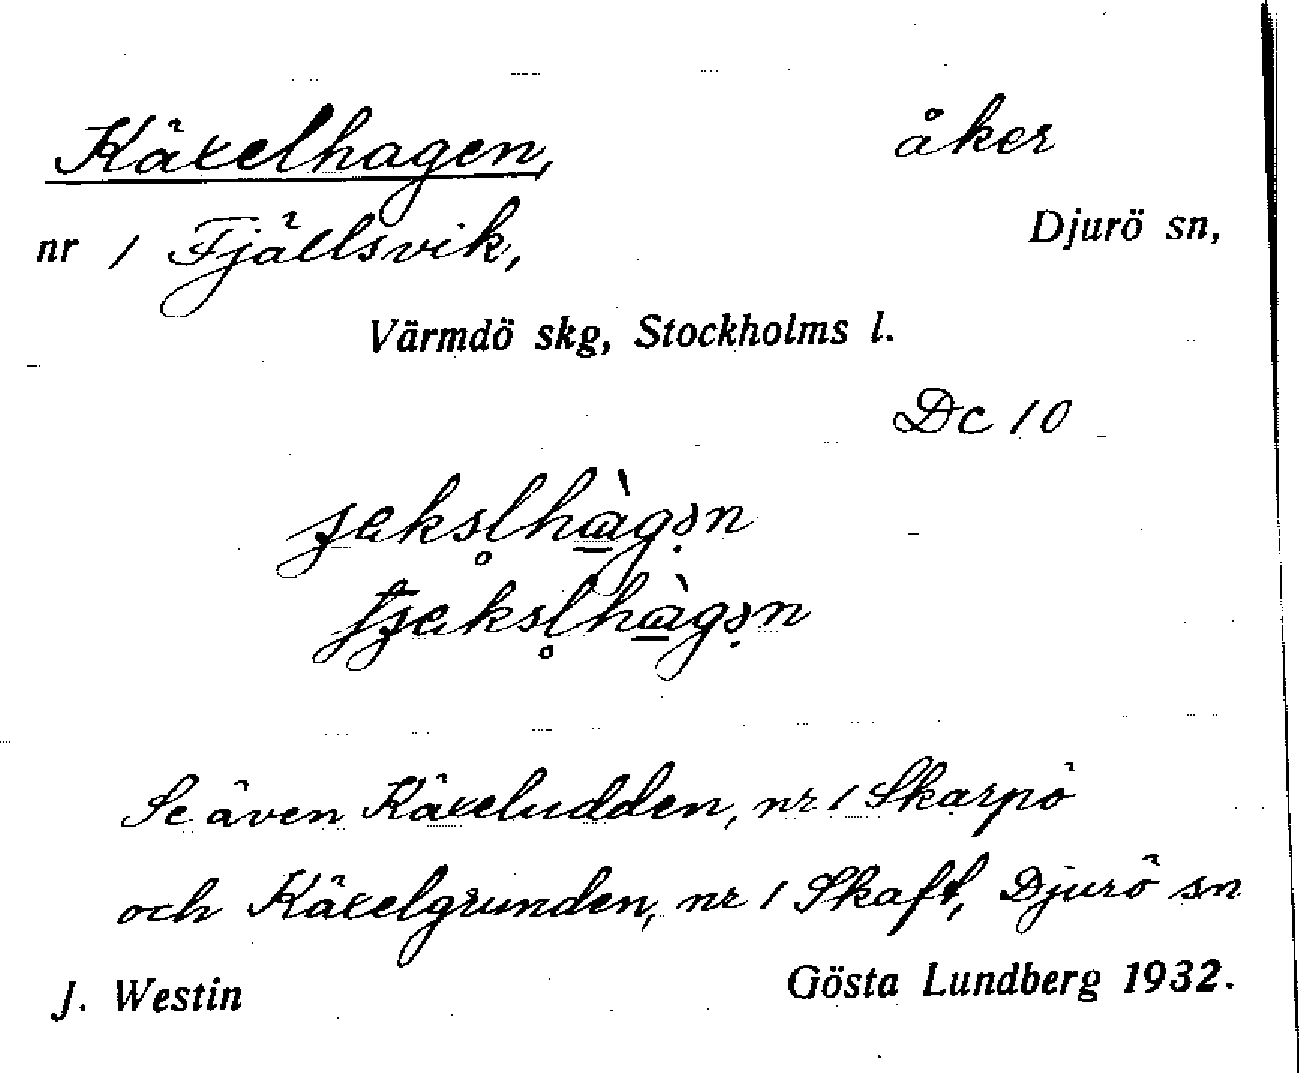 Käxelhagen, åker
nr 1 Fjällsvik, Djurö sn,
Värmdö skg, Stockholms l.
Dc 10
Se även Käxeludden, nr 1 Skarpö
och Käxelgrunden, nr 1 Skaft, Djurö sn
J. Westin Gösta Lundberg 1932.